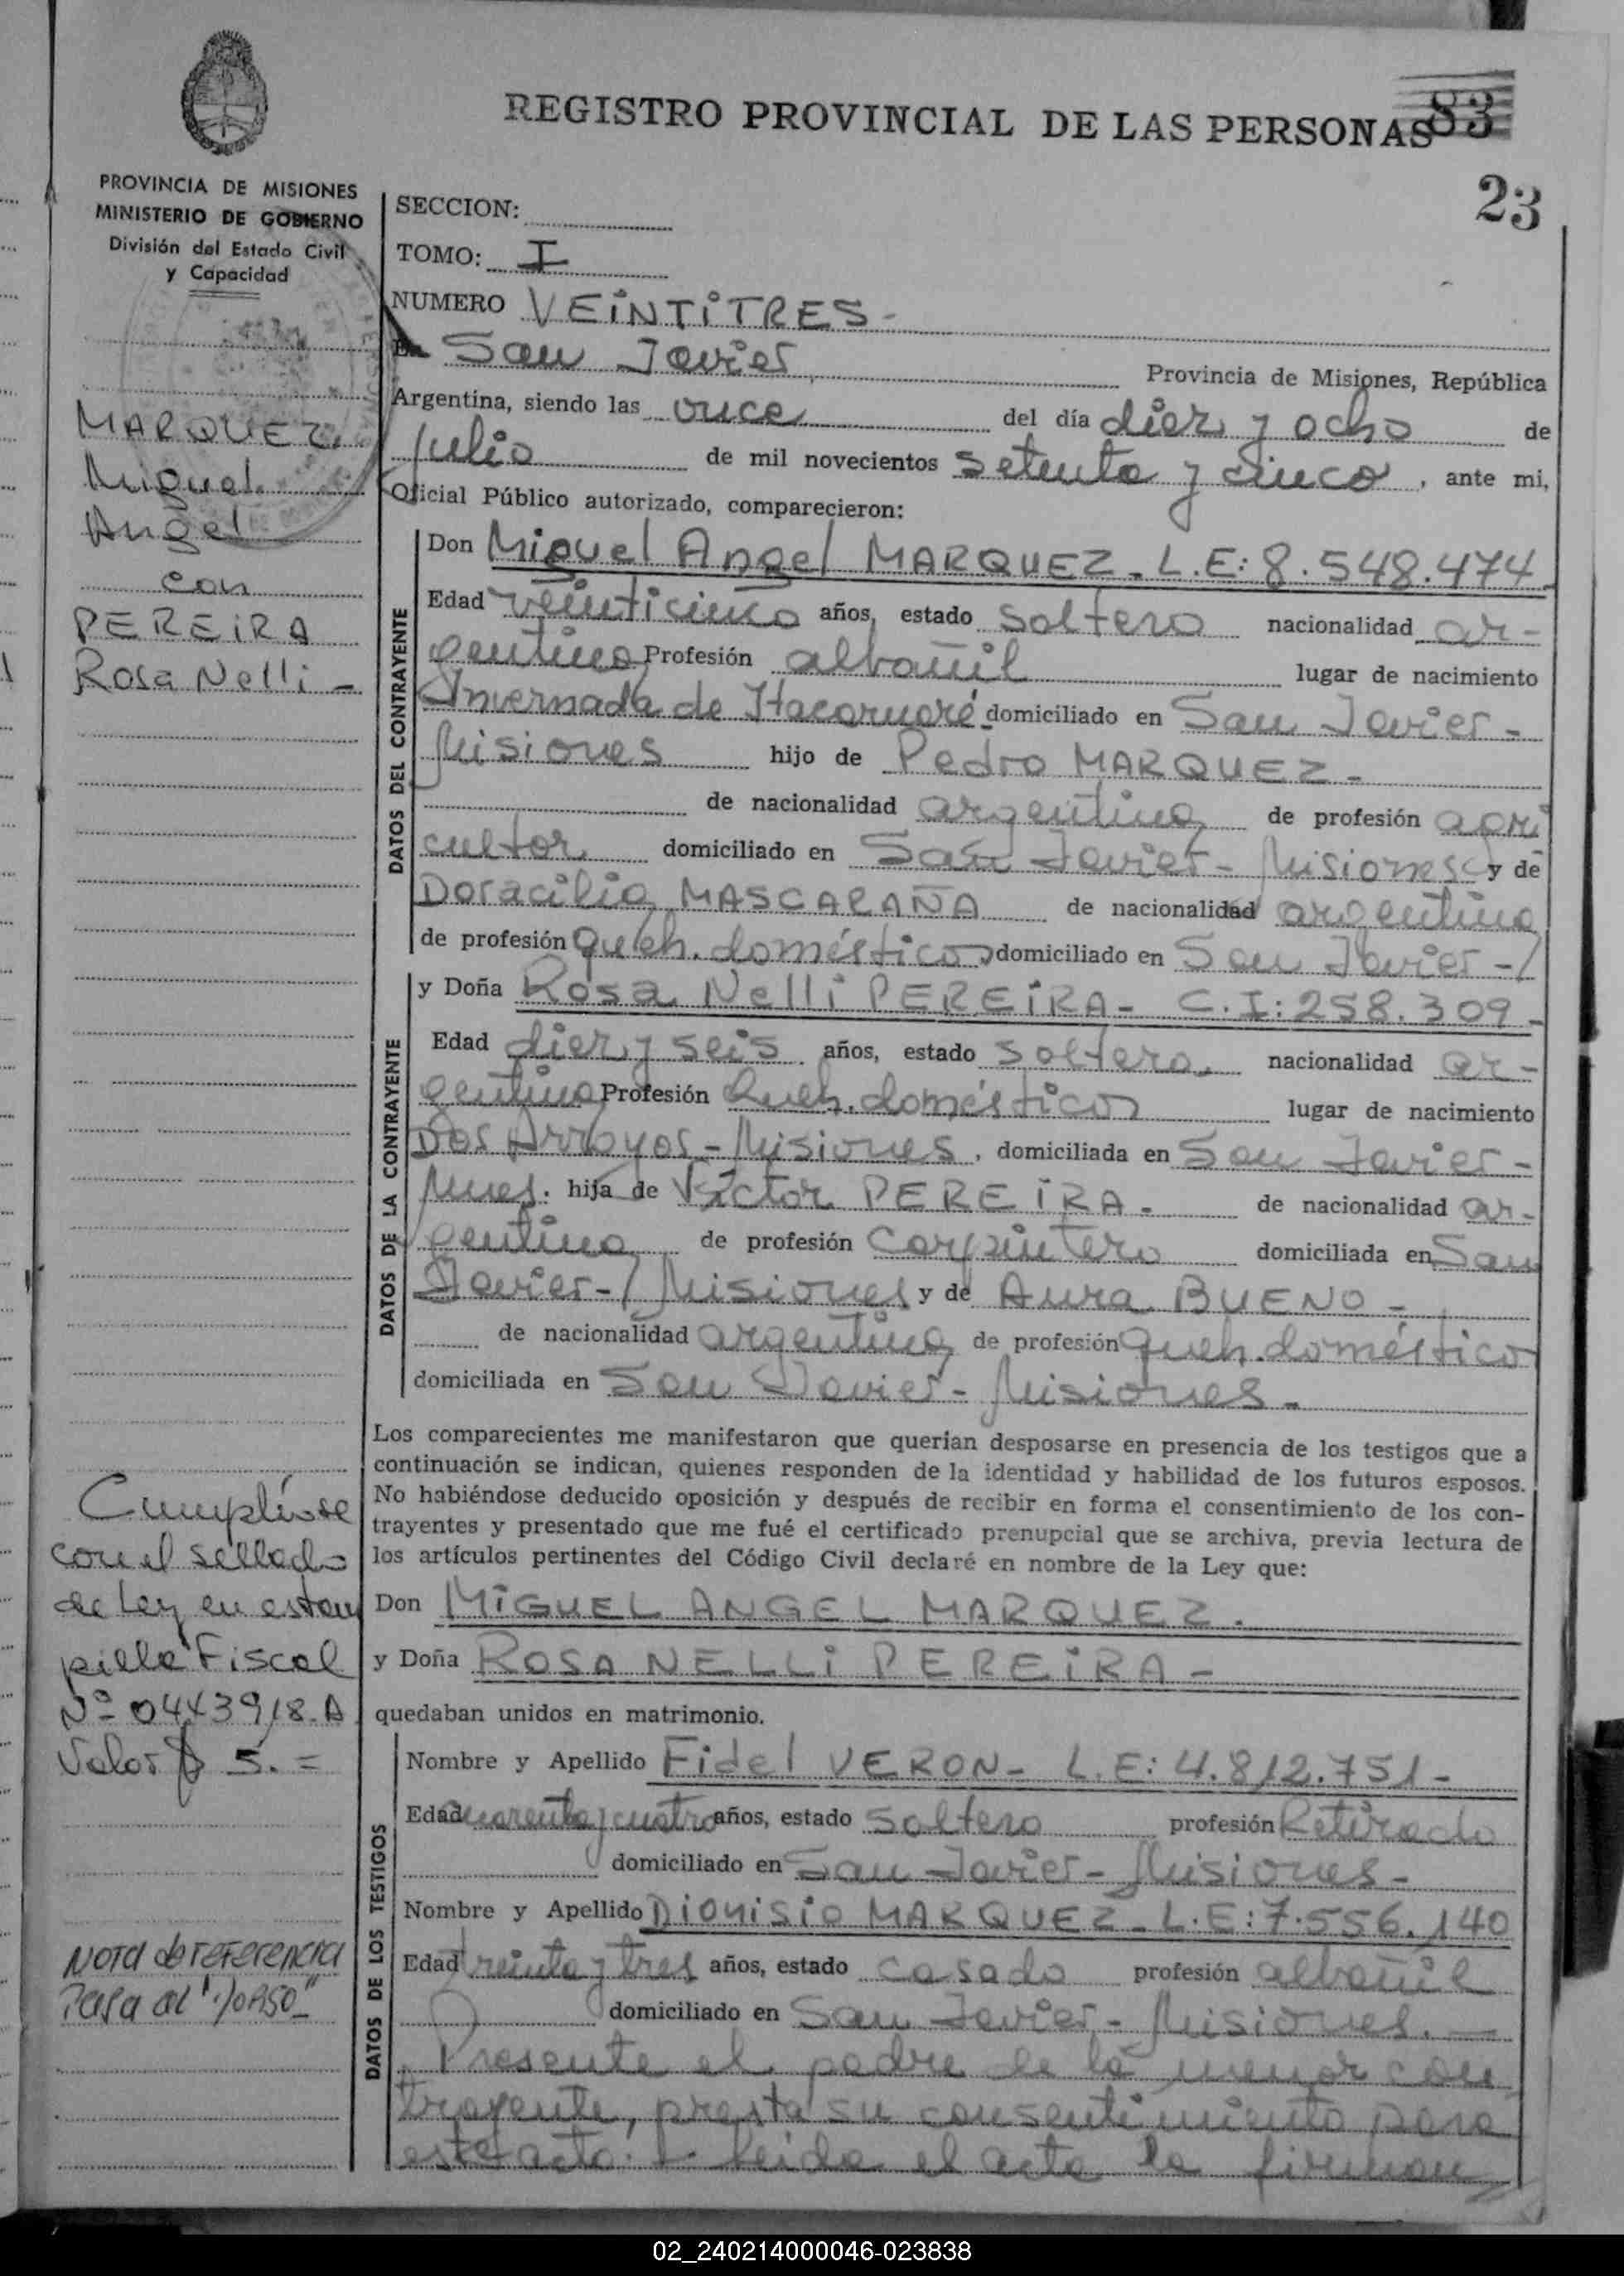 REGISTRO PROVINCIAL DE LAS PERSONAS
83
23
PROVINCIA DE MISIONES
MINISTERIO DE GOBIERNO
División del Estado Civil
y Capacidad
MARQUEZ,
Miguel
Angel
con
PEREIRA
Rosa Nelli -
SECCION:
TOMO: I
NUMERO VEINTITRES -
En San Javier, Provincia de Misiones, República
Argentina, siendo las once del día diez y ocho de
Julio de mil novecientos setenta y cinco, ante mi,
Oficial Público autorizado, comparecieron:
DATOS DEL CONTRAYENTE
Don Miguel Angel MARQUEZ - L.E: 8.548.474
Edad veinticinco años, estado soltero nacionalidad ar-
gentina Profesión albañil lugar de nacimiento
Invernada de Itacaruaré domiciliado en San Javier -
Misiones hijo de Pedro MARQUEZ -
de nacionalidad argentina de profesión agri
cultor domiciliado en San Javier - Misiones y de
Doracilia MASCARAÑA de nacionalidad argentina
de profesión queh. domésticos domiciliado en San Javier -/
DATOS DE LA CONTRAYENTE
y Doña Rosa Nelli PEREIRA - C.I: 258.309 -
Edad diez y seis años, estado soltera, nacionalidad ar-
gentina Profesión Queh. domésticos lugar de nacimiento
Dos Arroyos - Misiones, domiciliada en San Javier -
Mnes. hija de Víctor PEREIRA - de nacionalidad ar-
gentina de profesión carpintero domiciliada en San
Javier - Misiones y de Aura BUENO -
de nacionalidad argentina de profesión queh. domésticos
domiciliada en San Javier - Misiones -
Los comparecientes me manifestaron que querían desposarse en presencia de los testigos que a
continuación se indican, quienes responden de la identidad y habilidad de los futuros esposos.
No habiéndose deducido oposición y después de recibir en forma el consentimiento de los con-
trayentes y presentado que me fué el certificado prenupcial que se archiva, previa lectura de
los artículos pertinentes del Código Civil declaré en nombre de la Ley que:
Don MIGUEL ANGEL MARQUEZ.
y Doña ROSA NELLI PEREIRA -
quedaban unidos en matrimonio.
Cumplióse
con el sellado
de Ley en estam
pilla Fiscal
Nº 0443918-A
Valor $ 5. =
DATOS DE LOS TESTIGOS
Nombre y Apellido Fidel VERON - L.E: 4.812.751 -
Edad cuarenta y cuatro años, estado soltero profesión Retirado
domiciliado en San Javier - Misiones -
Nombre y Apellido Dionisio MARQUEZ - L.E: 7.556.140
Edad treinta y tres años, estado casado profesión albañil
domiciliado en San Javier - Misiones. -
Presente el padre de la menor con
trayente, presta su consentimiento para
este acto. Leída el acta la firman
Nota de referencia
Pasa al
02_240214000046-023838